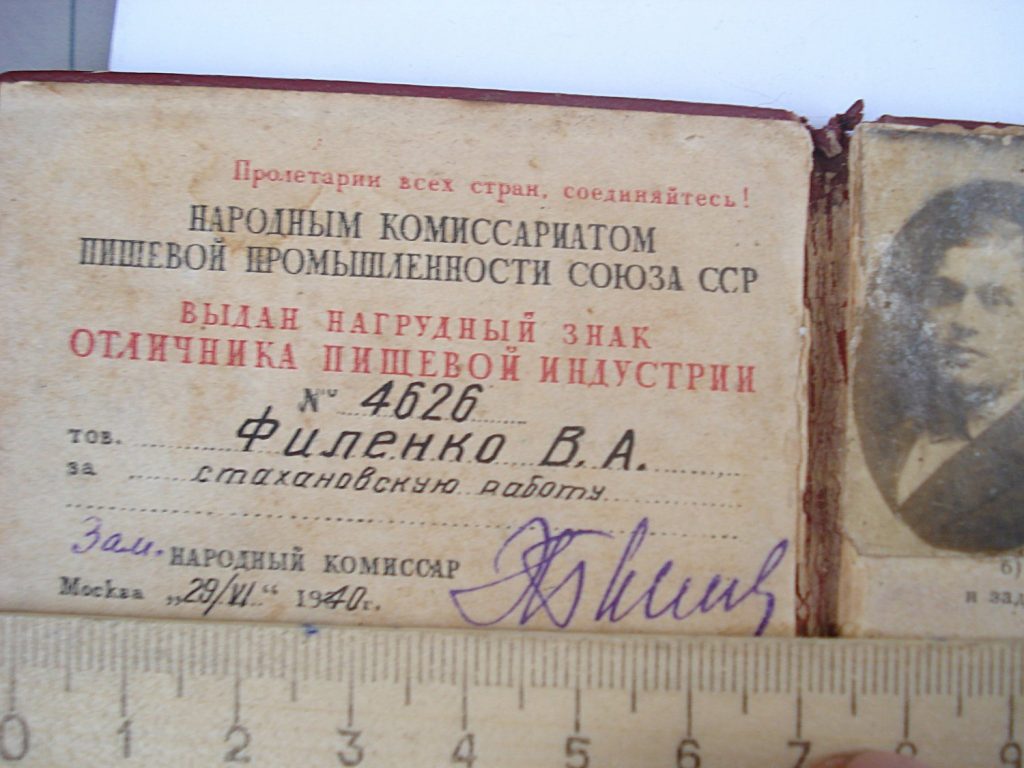 Пролетарии всех стран, соединяйтесь!
НАРОДНЫМ КОМИССАРИАТОМ
ПИЩЕВОЙ ПРОМЫШЛЕННОСТИ СОЮЗА ССР
ВЫДАН НАГРУДНЫЙ ЗНАК
ОТЛИЧНИКА ПИЩЕВОЙ ИНДУСТРИИ
№ 4626
тов. Филенко В.А.
за стахановскую работу
Зам. НАРОДНЫЙ КОМИССАР
Москва „29/VI“ 1940г.
б)
и зад
0 1 2 3 4 5 6 7 8 9